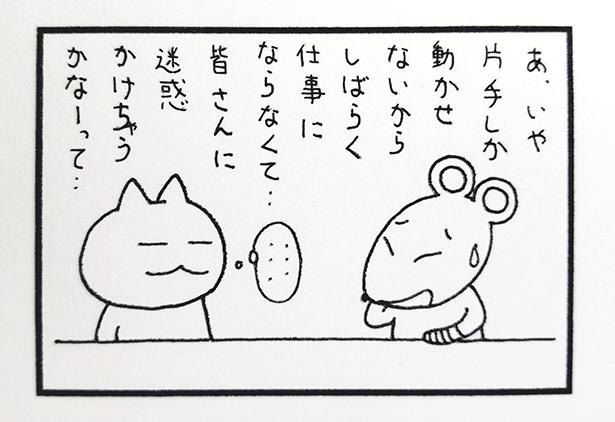 あ、いや
片手しか
動かせ
ないから
しばらく
仕事に
ならなくて…
皆さんに
迷惑
かけちゃう
かなーって…